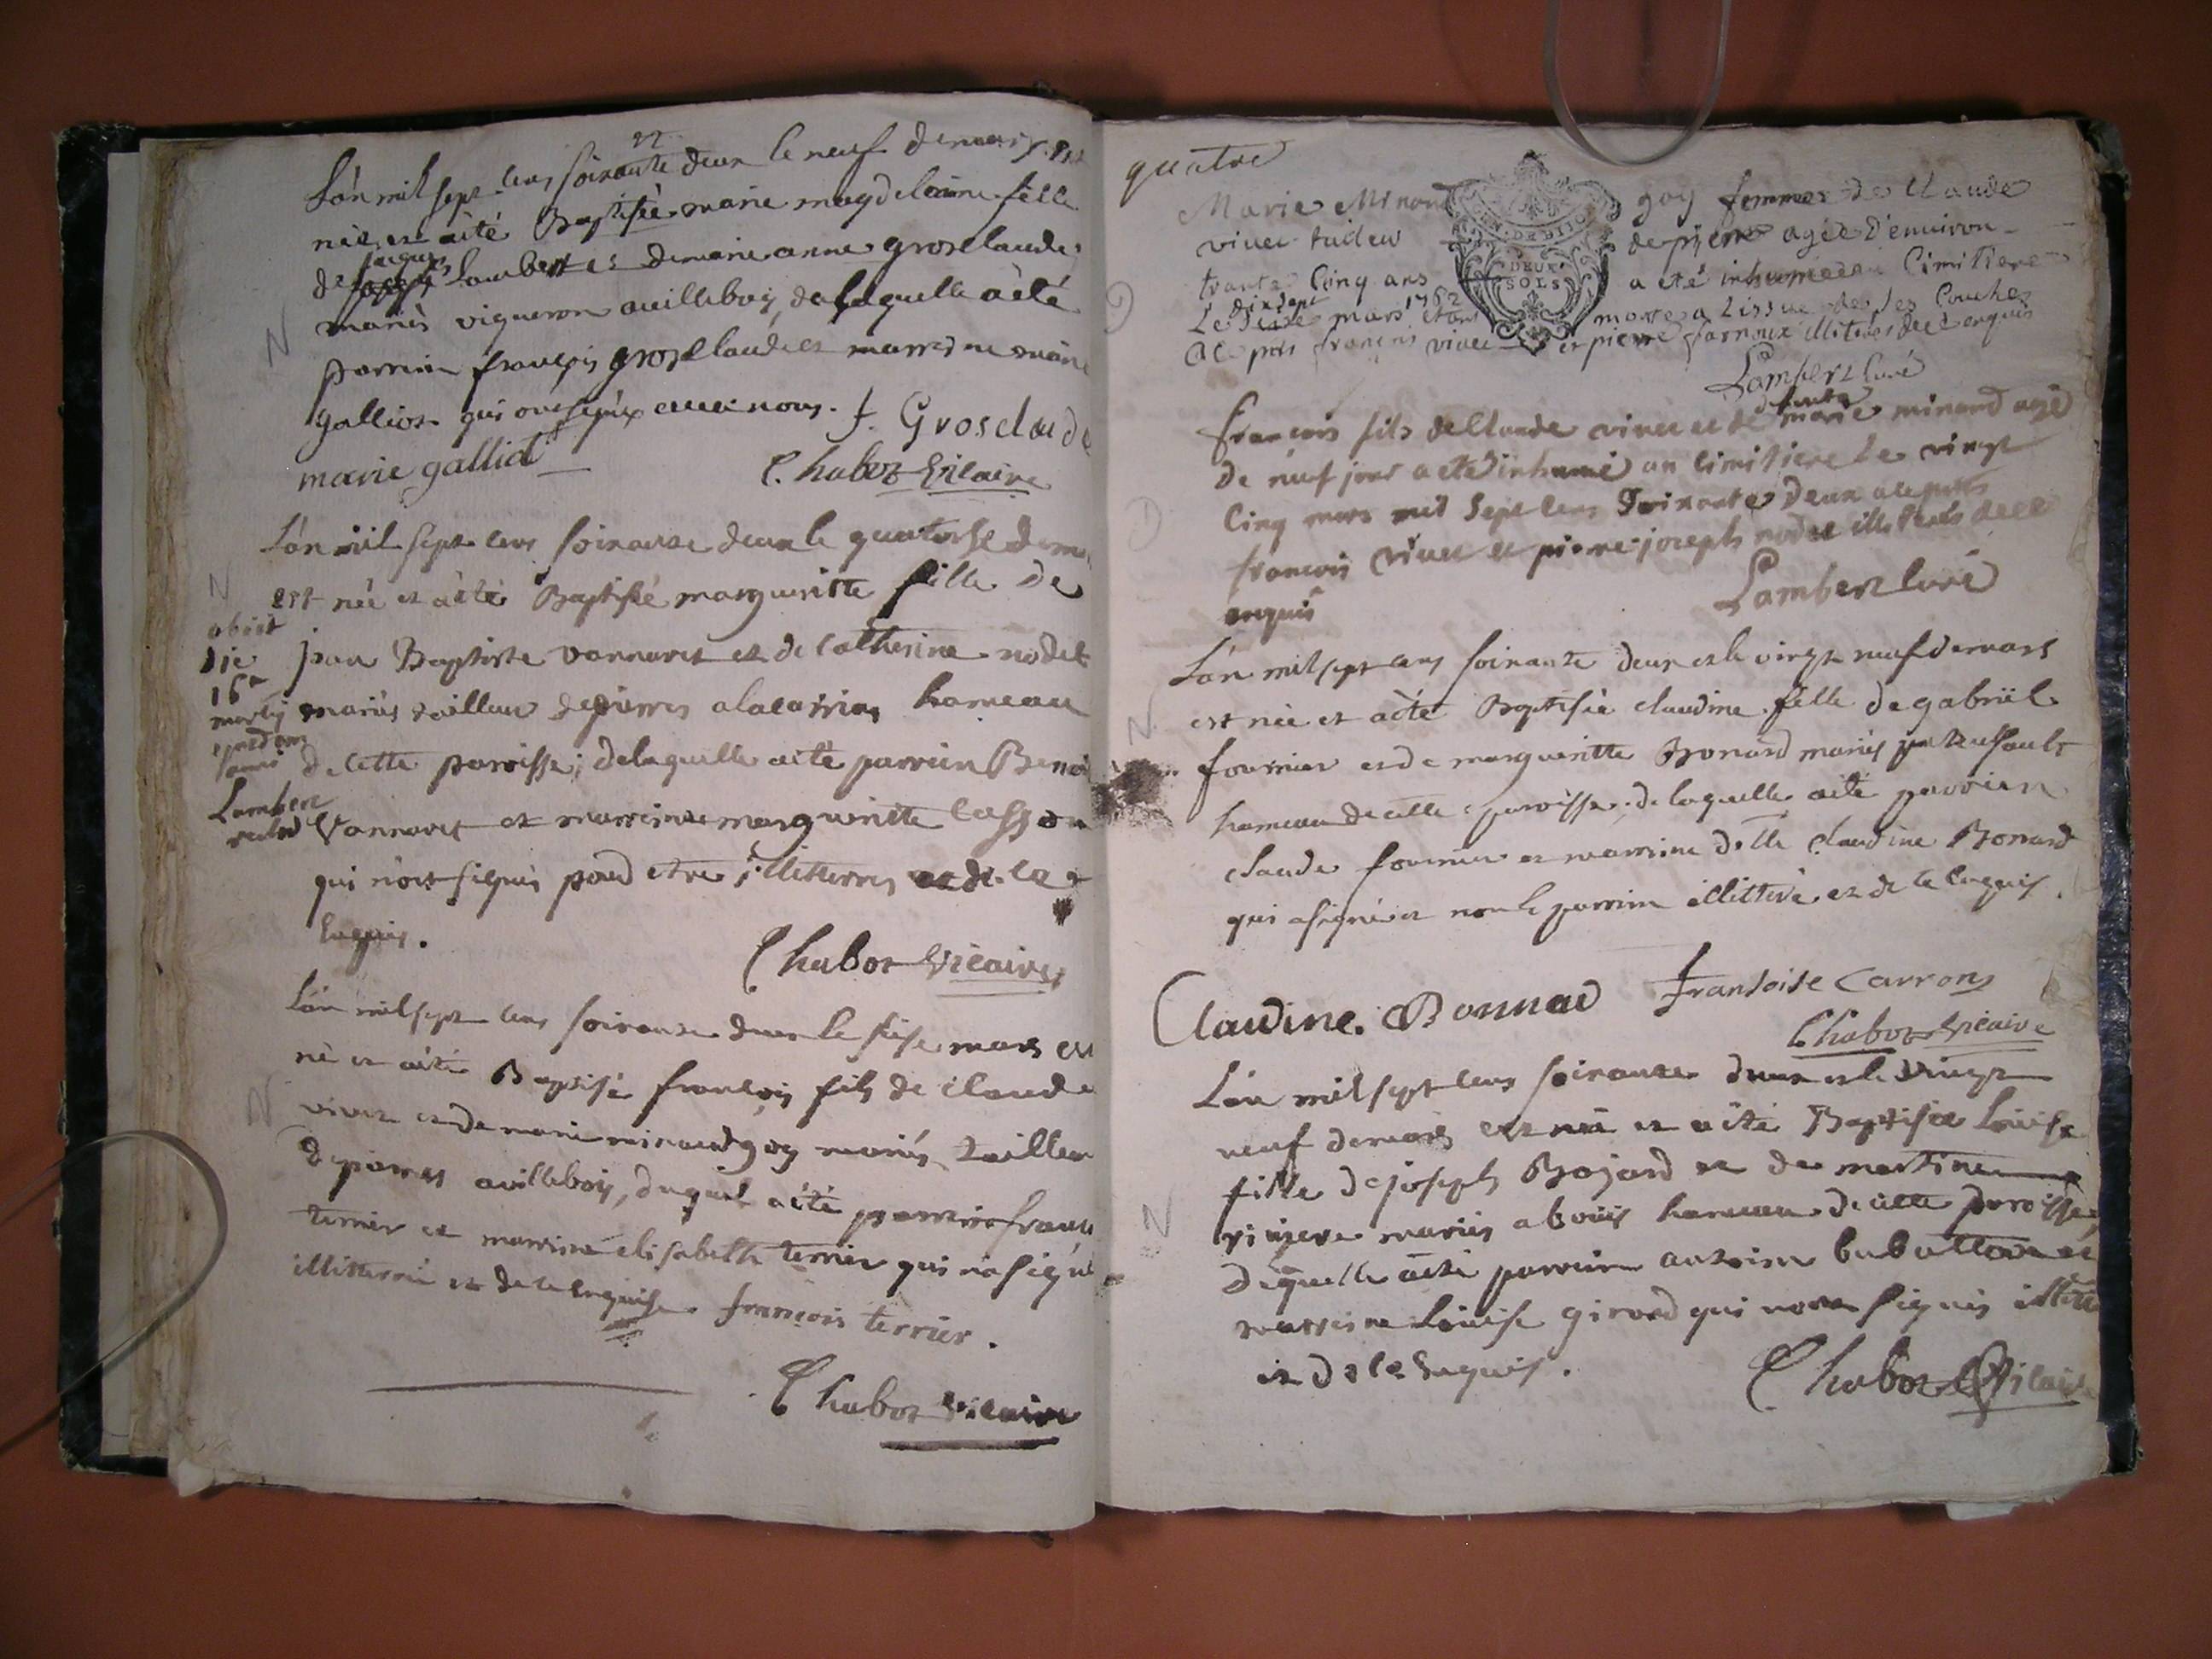 L'an mil sept cens soixante deux le neuf de mars est
née et a été Baptisée marie magdelaine fille
de jacques Loubert et de marie anne groselaude
mariés vigneron a villeboij, de laquelle a été
parrein françois groselaude et marreine marie
galliot qui ont signés avec nous. f. Grosclaude
marie galliot Chabot Vicaire
L'an mil sept cens soixante deux le quatorse de mars
est née et a été Baptisé margueritte fille de
jean Baptiste vannaret et de Catherine nodet
mariés tailleur de pierres a la carrier hameau
de cette parroisse; de laquelle a été parrein Benoi
Vannaret et marreine margueritte
qui n'ont signés pour etre illitterés et de ce
Enquis.
Chabot Vicaire
N
obiit
die
16a
martij
Lambert
L'an mil sept cens soixante deux le seise mars est
né et a été Baptisé françois fils de claude
vivet et de marie minaudgoy mariés tailleur
de pierres a villeboij, duquel a été parrein françois
terrier et marreine elisabeth terrier qui n'a signé
illitterée et de ce enquise. françois terrier.
Chabot Vicaire
quatre
Marie Minaud goy femme de Claude
vivet tailleur de pierre agée d'environ
trante Cinq ans a eté inhumée au Cimitiere
Le dixsept mars 1762 étant morte a Lissue de ses Couches
DEUX SOLS
Lambert Curé
francois fils de Claude vivet et de defunte marie minaud agé
de neuf jour a eté inhumé au Cimitiere le vingt
Cinq mars mil Sept Cens Soixante Deux
francois vivet et pierre joseph nodet illiterés de ce
enquis
Lambert Curé
L'an mil sept cens soixante deux et le vingt neuf de mars
est née et a été Baptisée claudine fille de gabriël
fournier et de margueritte Bonard mariés
hameau de cette parroisse; de laquelle a été parrein
claude fournier et marreine dlle Claudine Bonard
qui a signé et non le parrein illitteré et de ce Enquis.
Claudine. Bonnad fransoise Carron
Chabot Vicaire
L'an mil sept cens soixante deux et le vingt
neuf de mars est née et a été Baptisée Louise
fille de joseph Bojard et de martine
mariés a bouis hameau de cette parroisse,
de quelle a été parrein antoine
marreine Louise girord qui n'ont signés
et de ce Enquis.
Chabot Vicaire